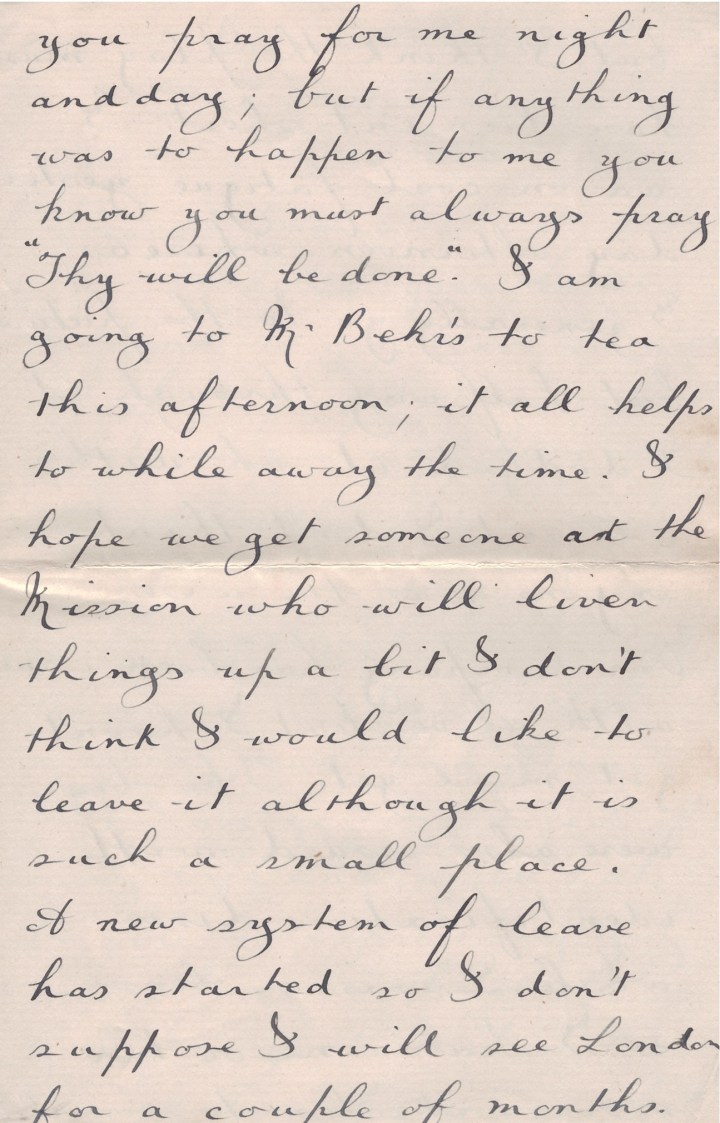 you pray for me night
and day; but if anything
was to happen to me you
know you must always pray
"Thy will be done". I am
going to Mr Behr's to tea
this afternoon; it all helps
to while away the time. I
hope we get someone at the
Mission who will liven
things up a bit I don't
think I would like to
leave it although it is
such a small place.
A new system of leave
has started so I don't
suppose I will see London
for a couple of months.